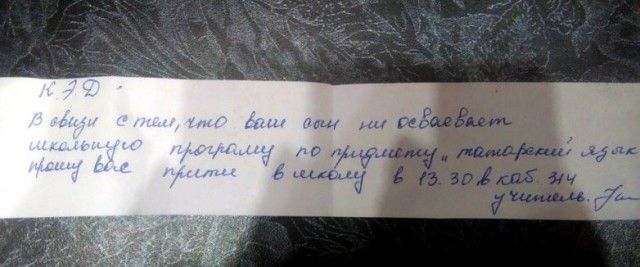 К. Э. Д.
В связи с тем, что ваш сын ни осваевает
школьную програму по придмету „татарский язык
прошу вас прити в школу в 13.30 в каб. 314
учитель.